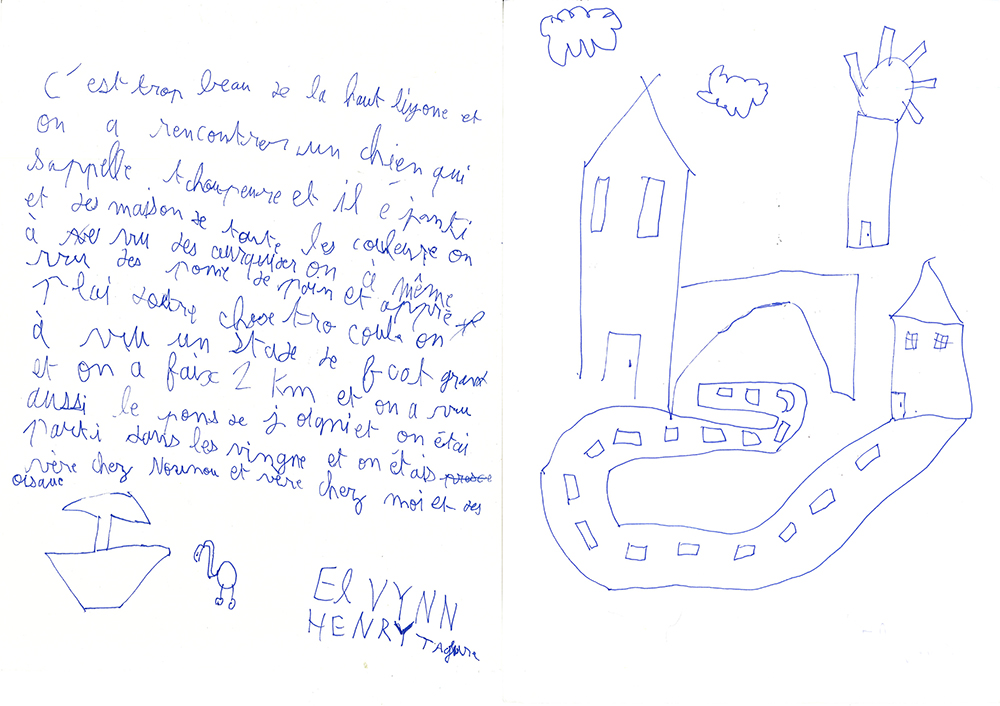 C'est trop beau de la haut l'iyone et
on a rencontrer un chien qui
s'appelle tchoupeure et il é janti
et des maison de toute les couleure on
à vu des
vru des pome de pain et on à même
plai d'autre chose tro coula on
à vru un stade de foot grand
et on a faix 2 km et on a vru
aussi le pons de joigni et on étai
parti dans les vingne et on étais
vère chez Nounou et vère chez moi et des
oisauc
ElVYNN
HENRY